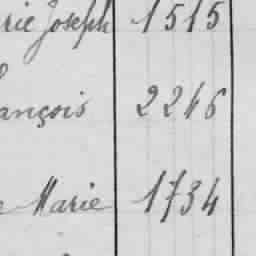 rie Joseph 1515
ançois 2246
Marie 1734